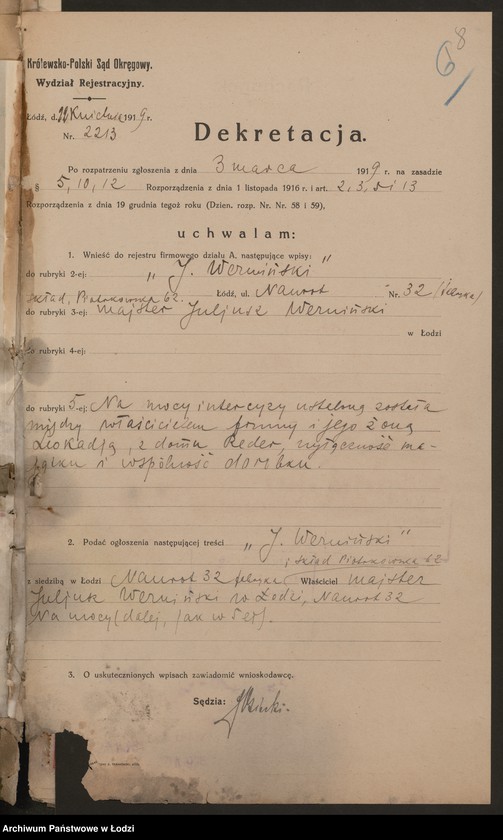 68
Królewsko-Polski Sąd Okręgowy.
Wydział Rejestracyjny.
Łódź, d. Kwietnia 1919 r.
Nr. 2213
Dekretacja.
Po rozpatrzeniu zgłoszenia z dnia 3 marca 1919 r. na zasadzie
§ 5, 10, 12 Rozporządzenia z dnia 1 listopada 1916 r. i art. 2, 3, 5 i 13
Rozporządzenia z dnia 19 grudnia tegoż roku (Dzien. rozp. Nr. Nr. 58 i 59),
uchwalam:
1. Wnieść do rejestru firmowego działu A, następujące wpisy:
do rubryki 2-ej: „J. Wermiński"
skład, Piotrkowska 62. Łódź, ul. Nawrot Nr. 32 (fabryka)
do rubryki 3-ej: majster Juljusz Wermiński
w Łodzi
do rubryki 4-ej:
do rubryki 5-ej: Na mocy intercyzy ustaloną została
między właścicielem firmy i jego żoną
Leokadją, z domu Reder, wyłączność ma-
jątku i wspólność dorobku.
2. Podać ogłoszenia następującej treści „J. Wermiński"
; skład Piotrkowska 62
z siedzibą w Łodzi Nawrot 32 fabryka Właściciel majster
Juljusz Wermiński w Łodzi, Nawrot 32
Na mocy (dalej, jak w 5 ej).
3. O uskutecznionych wpisach zawiadomić wnioskodawcę.
Sędzia:
Archiwum Państwowe w Łodzi